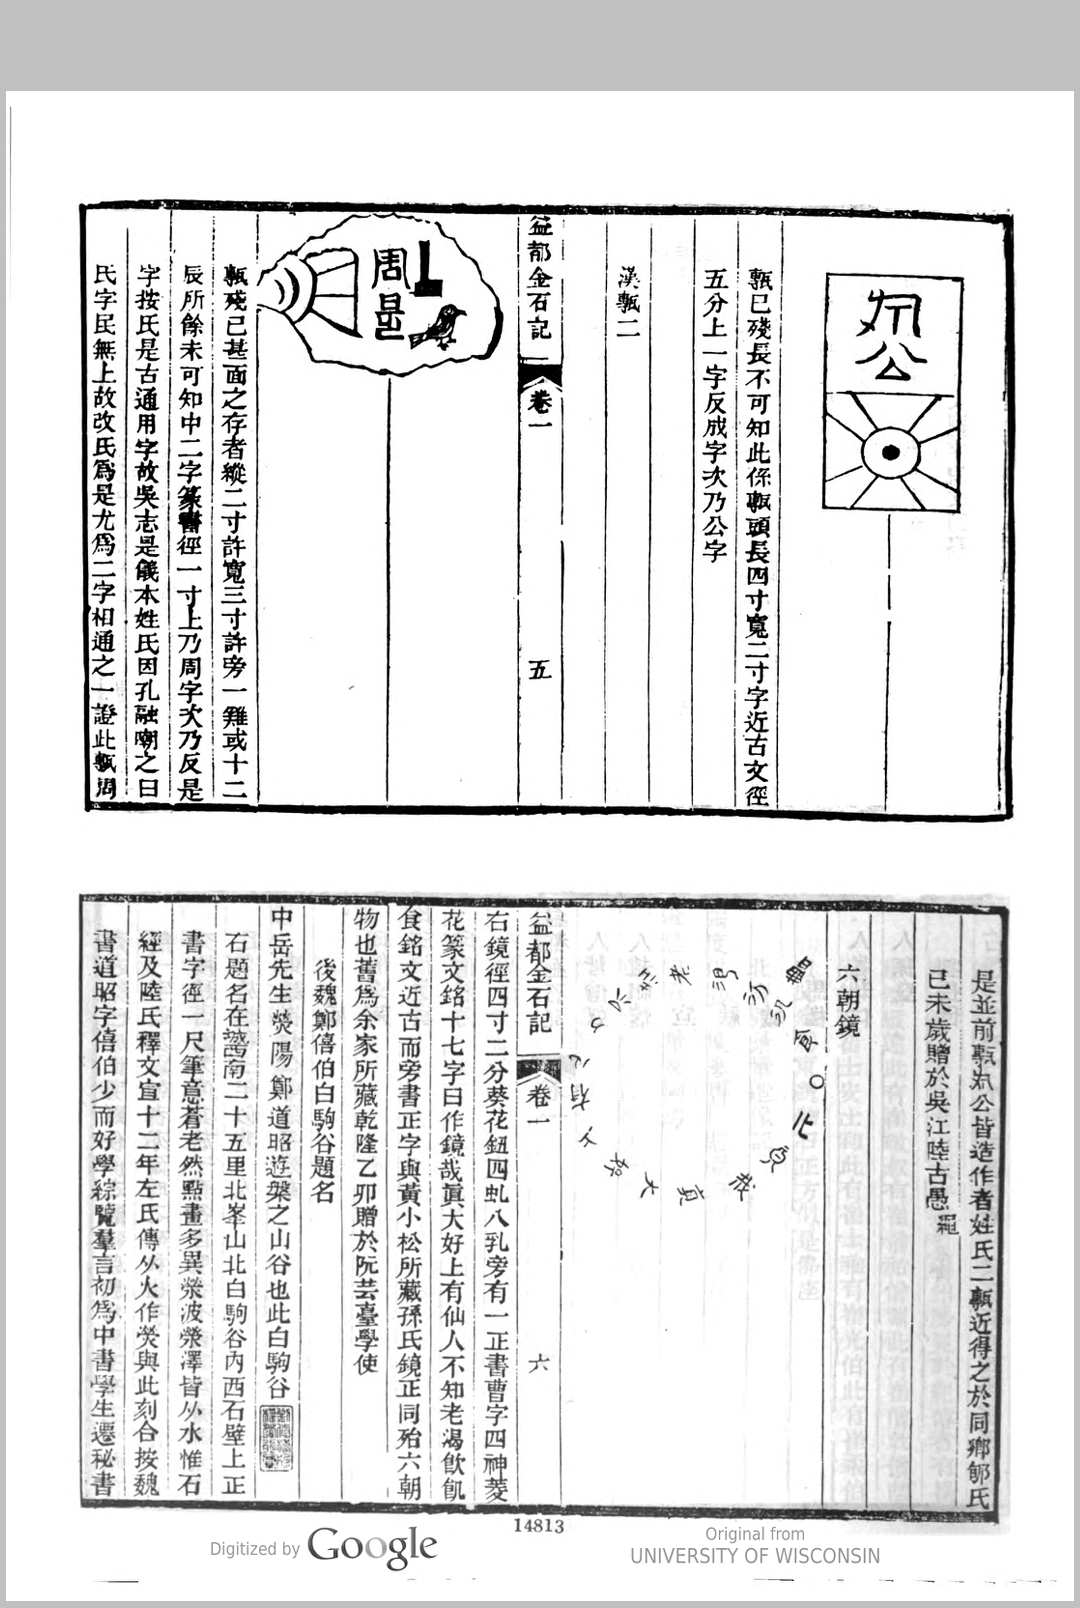 甄已殘長不可知此係甄頭長四寸寬二寸字近古文徑
五分上一字反成字次乃公字
漢甄二
益都金石記
卷一
五
周是
甄殘已甚面之存者縱二寸許寬三寸許旁一雞或十二
辰所餘未可知中二字篆書徑一寸上乃周字次乃反是
字按氏是古通用字故吳志是儀本姓氏因孔融嘲之曰
氏字民無上故改氏爲是尤爲二字相通之一證此甄周
是並前甄公皆造作者姓氏二甄近得之於同鄉郇氏
已未歲贈於吳江陸古愚繩
六朝鏡
益都金石記
卷一
六
右鏡徑四寸二分葵花鈕四虬八乳旁有一正書曹字四神菱
花篆文銘十七字曰作鏡哉眞大好上有仙人不知老渴飲飢
食銘文近古而旁書正字與黃小松所藏孫氏鏡正同殆六朝
物也舊爲余家所藏乾隆乙卯贈於阮芸臺學使
後魏鄭僖伯白駒谷題名
中岳先生熒陽鄭道昭遊槃之山谷也此白駒谷
右題名在益都西南二十五里北峯山北白駒谷內西石壁上正
書字徑一尺筆意蒼老然點畫多異滎波滎澤皆从水惟石
經及陸氏釋文宣十二年左氏傳从火作熒與此刻合按魏
書道昭字僖伯少而好學綜覽羣言初爲中書學生遷秘書
14813
Digitized by Google
Original from
UNIVERSITY OF WISCONSIN